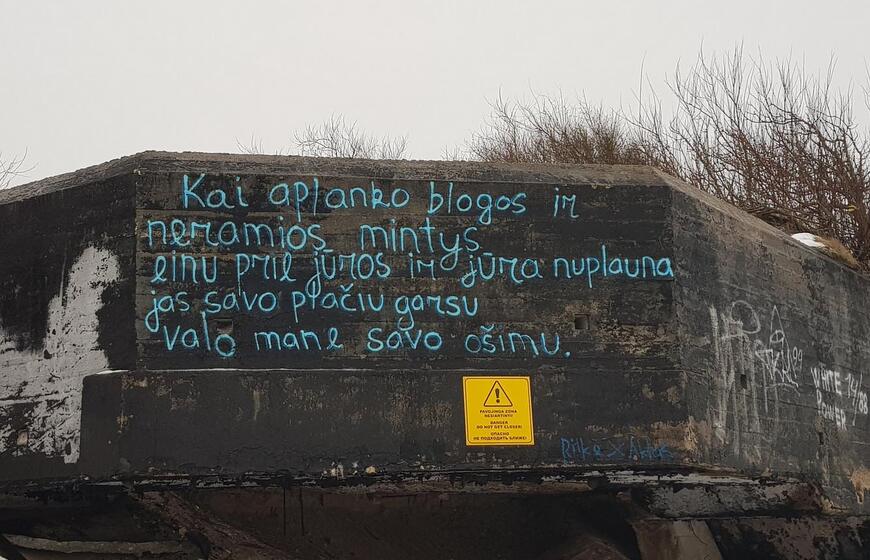 Kai aplanko blogos ir
neramios mintys
einu prie jūros ir jūra nuplauna
jas savo plačiu garsu
valo mane savo ošimu.
PAVOJINGA ZONA
NESIARTINTI!
DANGER
DO NOT GET CLOSER!
ОПАСНО
НЕ ПОДХОДИТЬ БЛИЖЕ!
WHITE 14/88
POWER